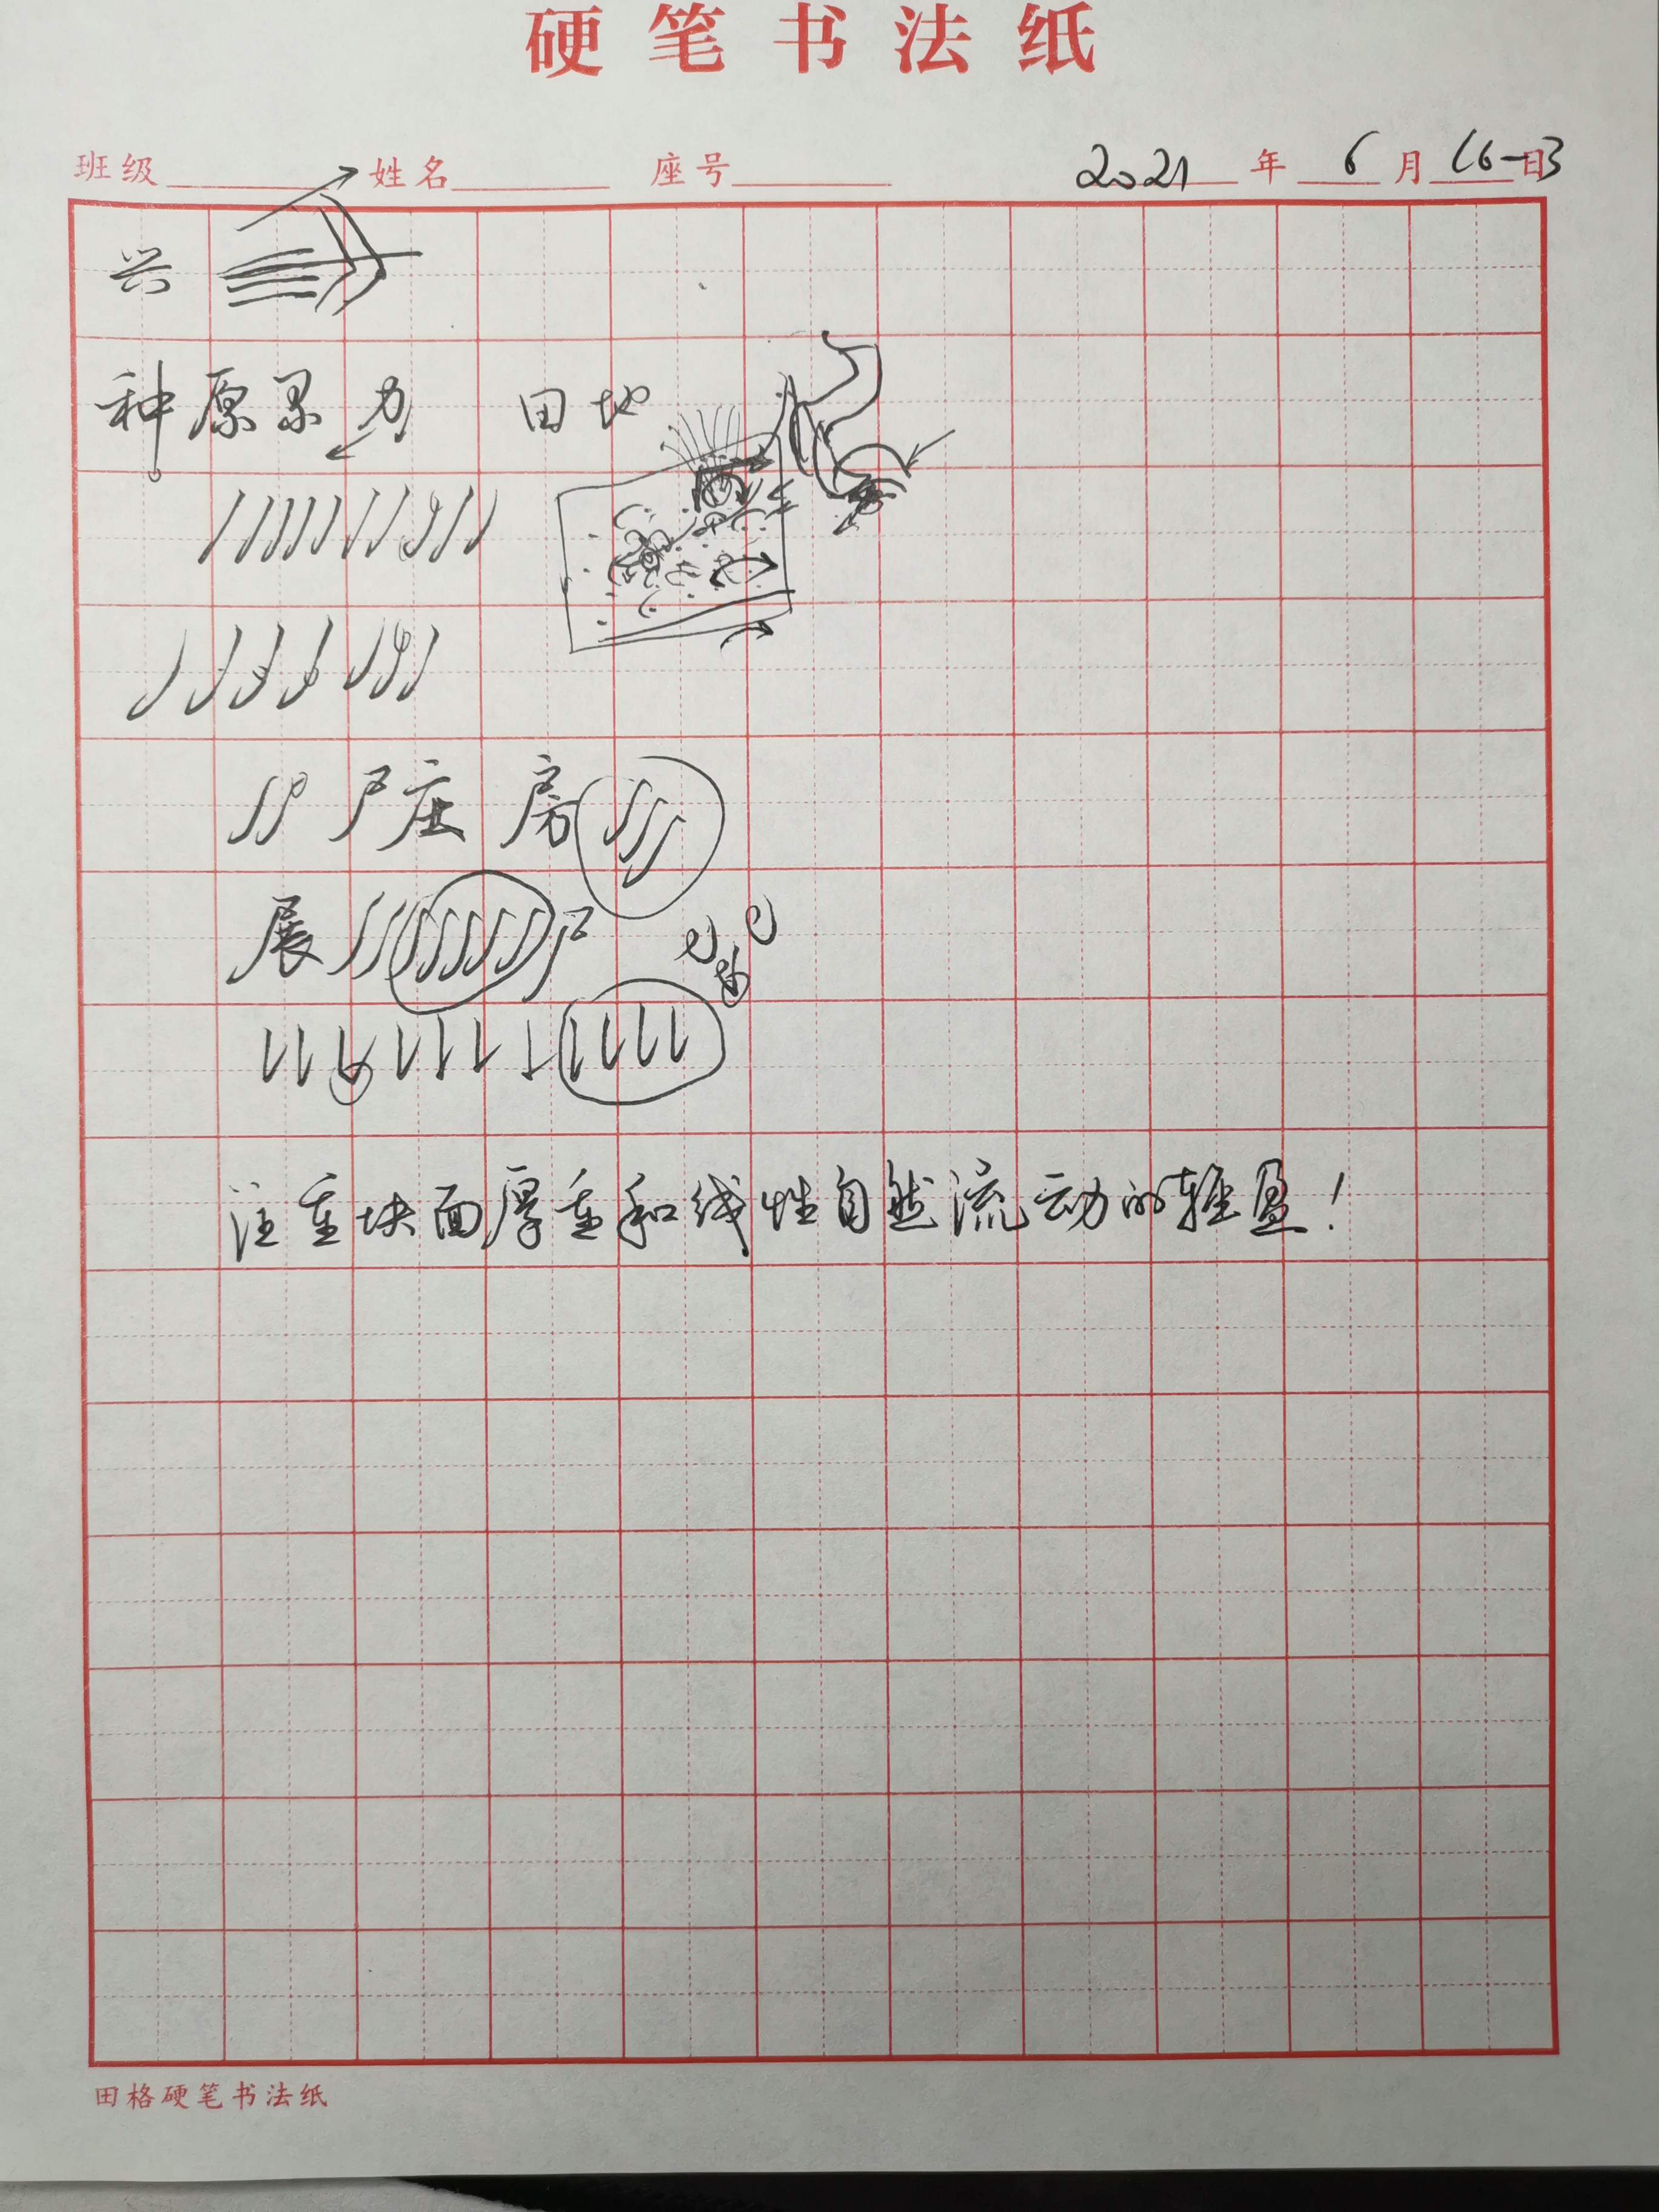 硬笔书法纸
班级 姓名 座号 2021年6月16-3日
兴
种原累力 田地
尸庄房
展尸
注重块面厚重和线性自然流动的轻盈！
田格硬笔书法纸